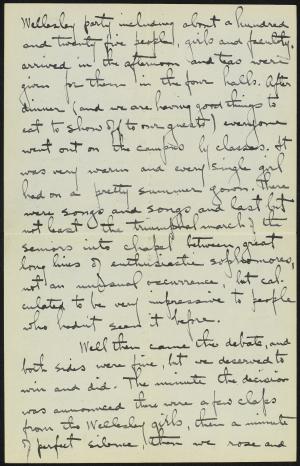 Wellesley party including about a hundred
and twenty five people, girls and faculty,
arrived in the afternoon and teas were
given for them in the four halls. After
dinner (and we are having good things to
eat to show off to our guests) everyone
went out on the campus by classes. It
was very warm and every single girl
had on a pretty summer gown. There
were songs and songs and last but
not least the triumphal march of the
seniors into chapel between great
long lines of enthusiastic sophomores,
not an unusual occurrence, but cal-
culated to be very impressive to people
who hadn't seen it before.
Well then came the debate, and
both sides were fine, but we deserved to
win and did. The minute the decision
was announced there were a few claps
from the Wellesley girls, then a minute
of perfect silence, then we rose and